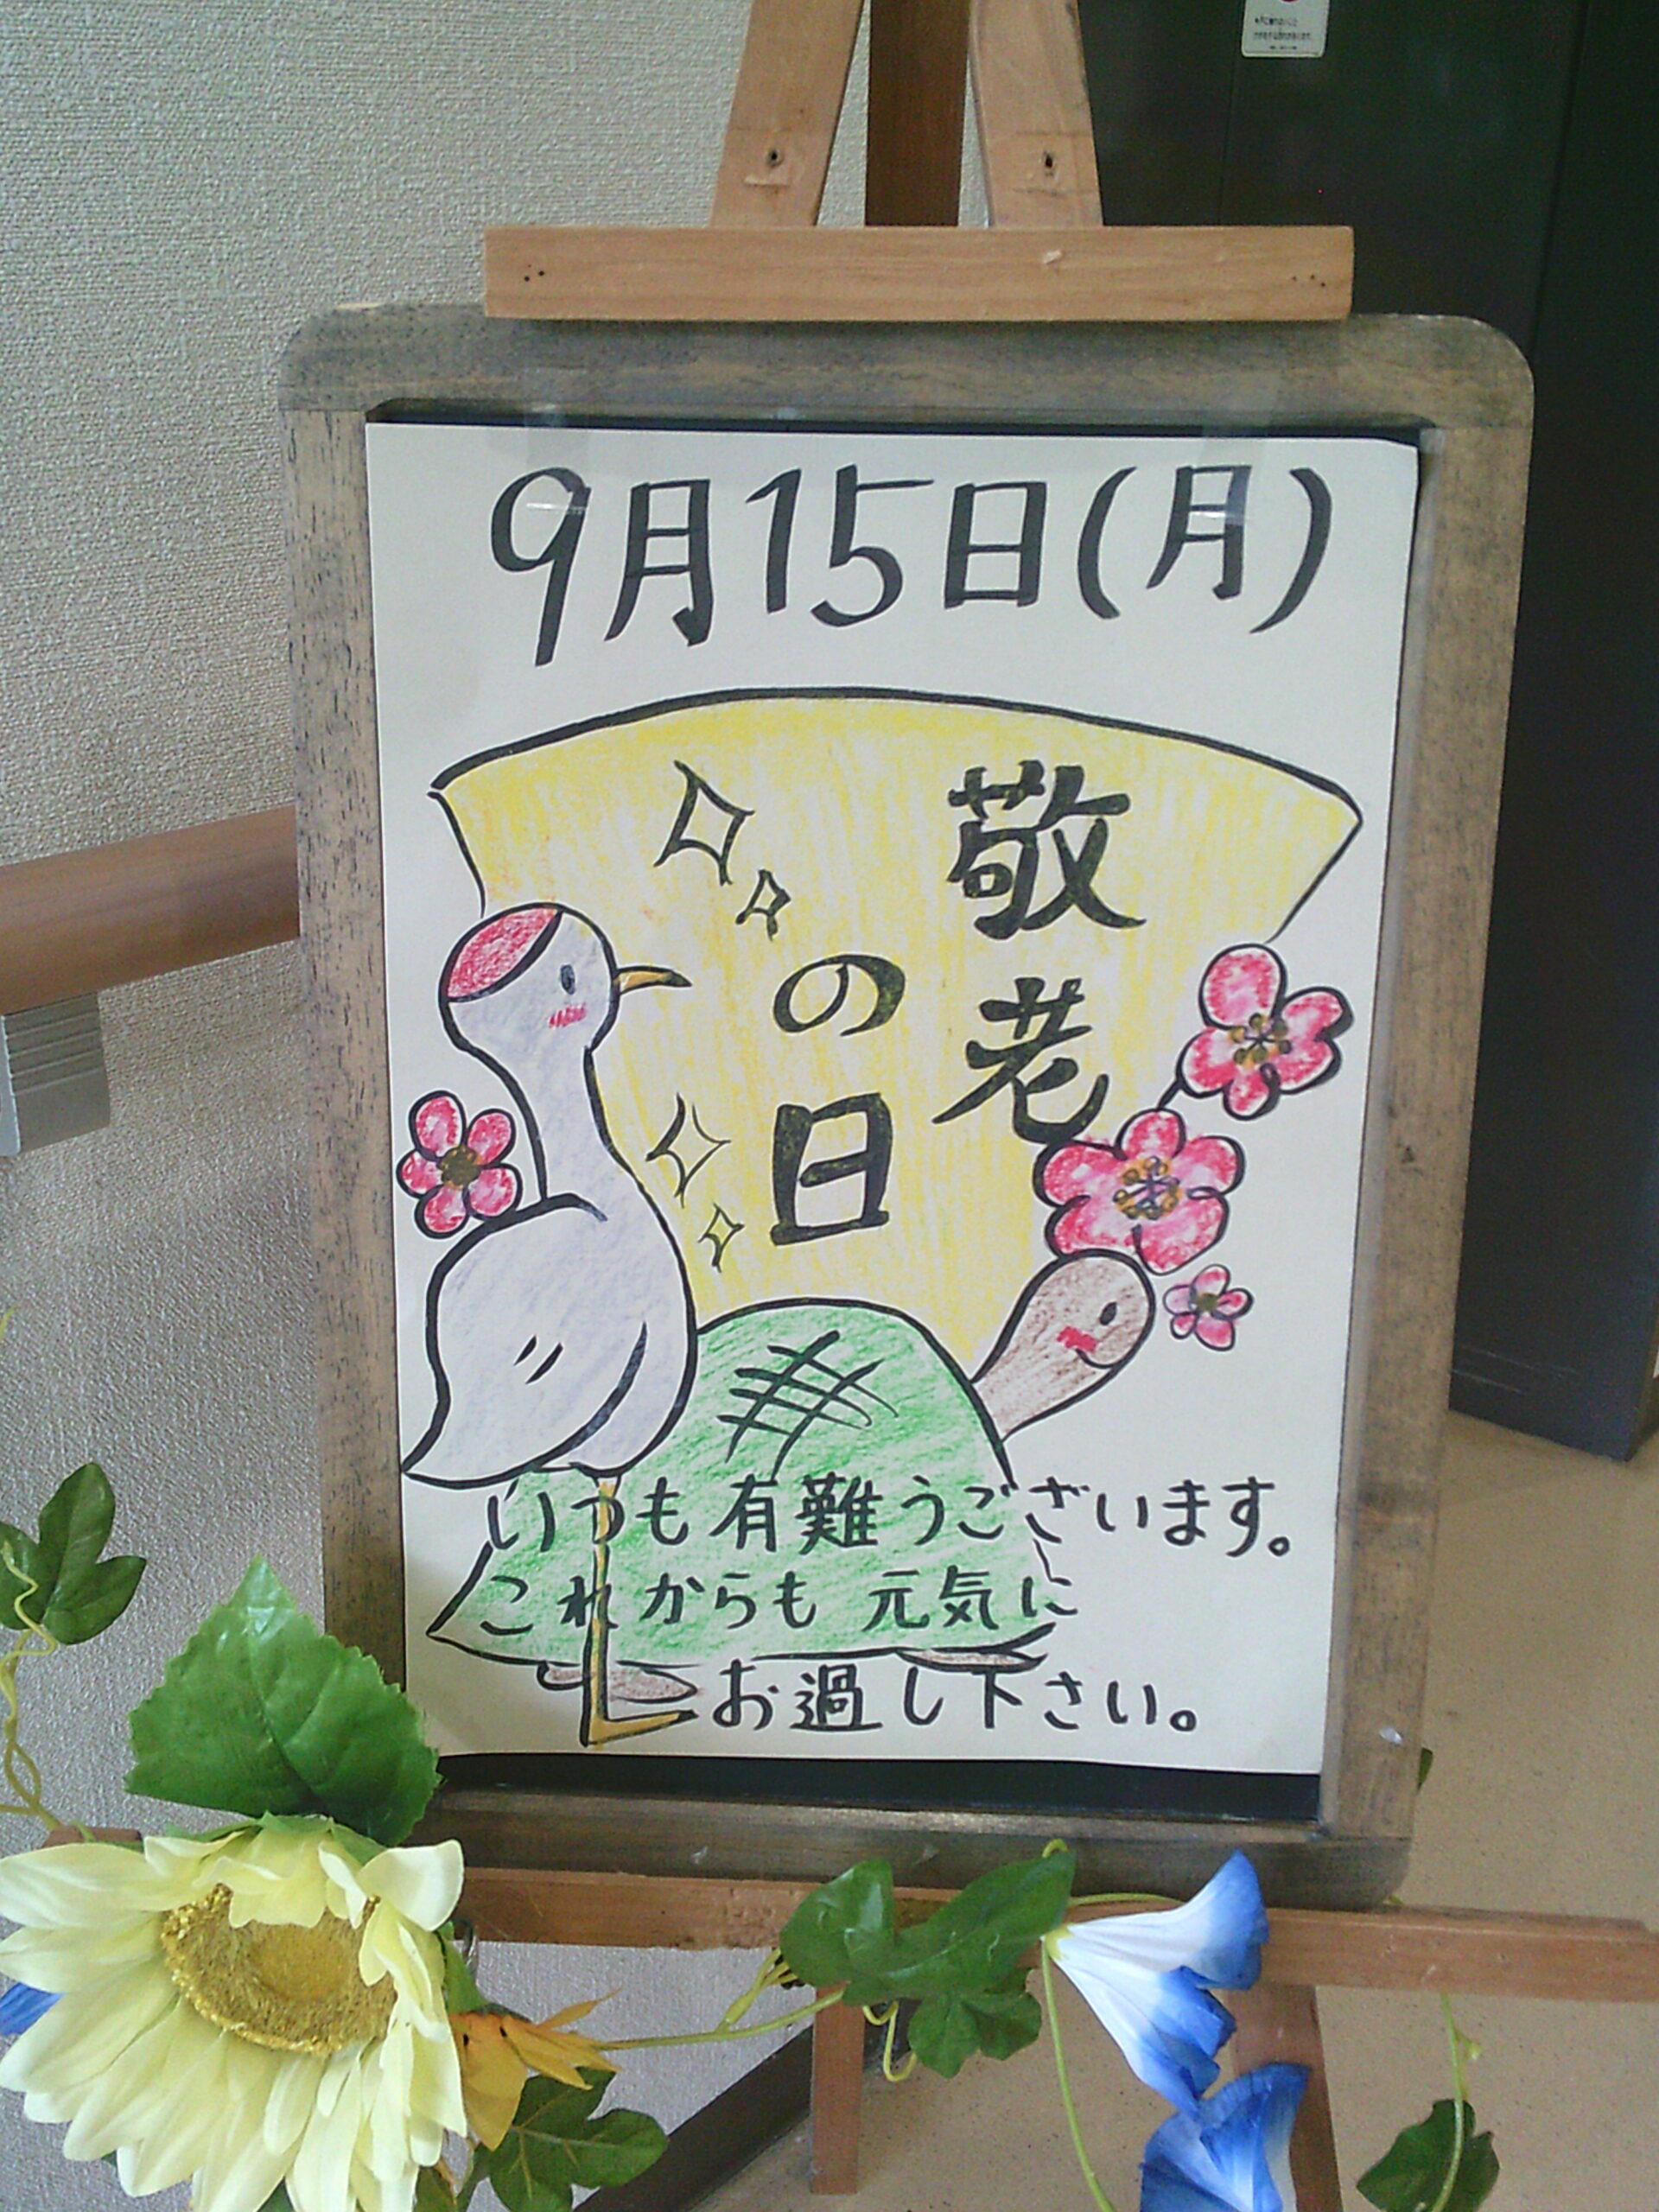 9月15日(月)
敬老
の日
いつも有難うございます。
これからも元気に
お過し下さい。